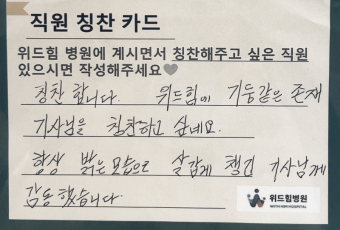 직원 칭찬 카드
위드힘 병원에 계시면서 칭찬해주고 싶은 직원
있으시면 작성해주세요
칭찬 합니다. 위드힘에 기둥같은 존재
기사님을 칭찬하고 싶네요.
항상 밝은 모습으로 살갑게 챙긴 기사님께
감동했습니다.
위드힘병원
WITHHIM HOSPITAL